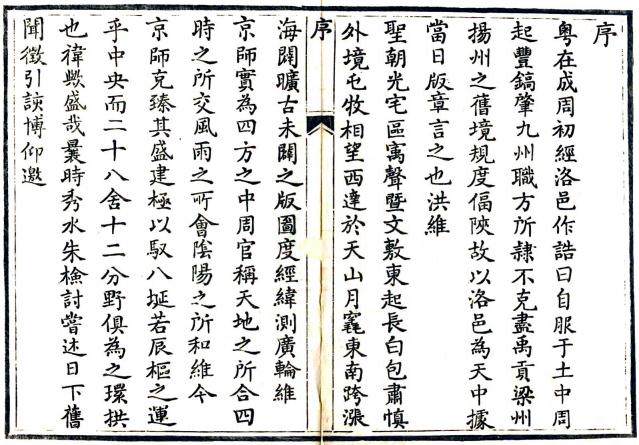 序
粤在成周初經洛邑作誥曰自服于土中周
起豐鎬肇九州職方所隸不克盡禹貢梁州
揚州之舊境規度偪陜故以洛邑為天中據
當日版章言之也洪維
聖朝光宅區寓聲暨文敷東起長白包肅慎
外境屯牧相望西達於天山月竁東南跨漲
序
海闢曠古未闢之版圖度經緯測廣輪維
京師實為四方之中周官稱天地之所合四
時之所交風雨之所會陰陽之所和維今
京師克臻其盛建極以馭八埏若辰樞之運
乎中央而二十八舍十二分野俱為之環拱
也禕歟盛哉曩時秀水朱檢討嘗述日下舊
聞徵引談博仰邀